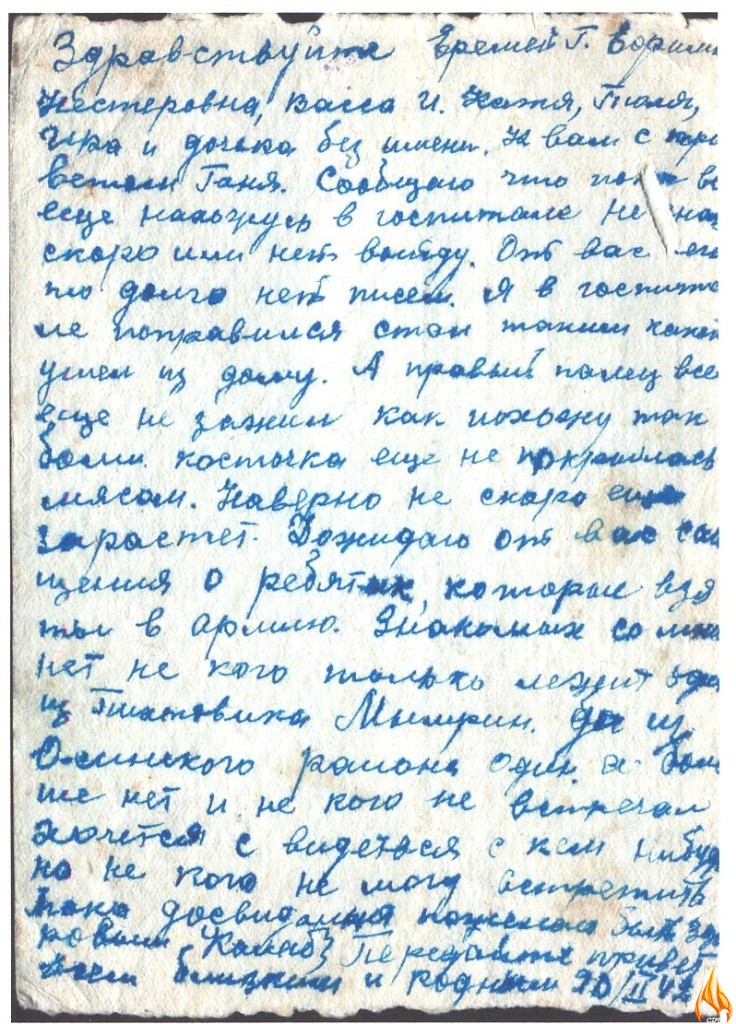 Здравствуйте Еремей Г.
Нестеровна, Васса И. Катя, Толя,
и дочка без имени. К вам с при
ветом Ганя. Сообщаю что пока
еще нахожусь в госпитале не зна
скоро или нет выйду. От вас
то долго нет писем. Я в госпита
ле поправился стал таким каки
ушел из дому. А правый палец все
еще не зажил как похожу так
боли. косточка еще не покрылась
мясом. Наверно не скоро еще
зарастет. Дожидаю от вас соо
щения о ребятах, которые взя
ты в армию. Знакомых со мно
нет не кого только лежит оди
из Мымрин. да из
Осинского района один. а бол
ше нет и не кого не встречал
хочется с видеться с кем нибуд
но не кого не могу встретить
пока досвидания пожелаю быть здо
ровым Передайте привет
всем близким и родным 20/II 42